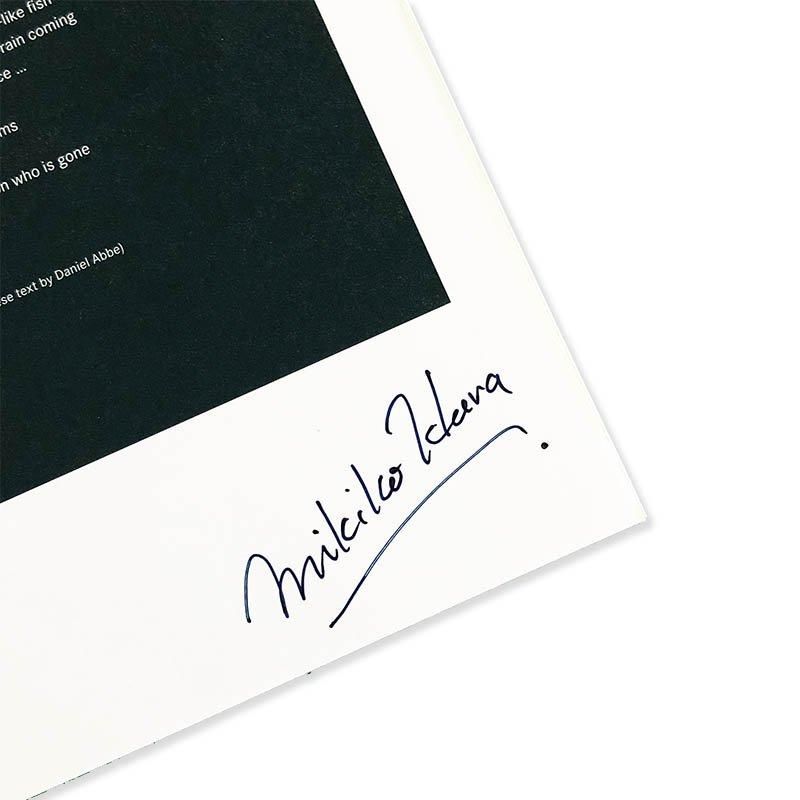 -like fish
rain coming
ce ...
ms
n who is gone
se text by Daniel Abbe)
Mikiko Hara